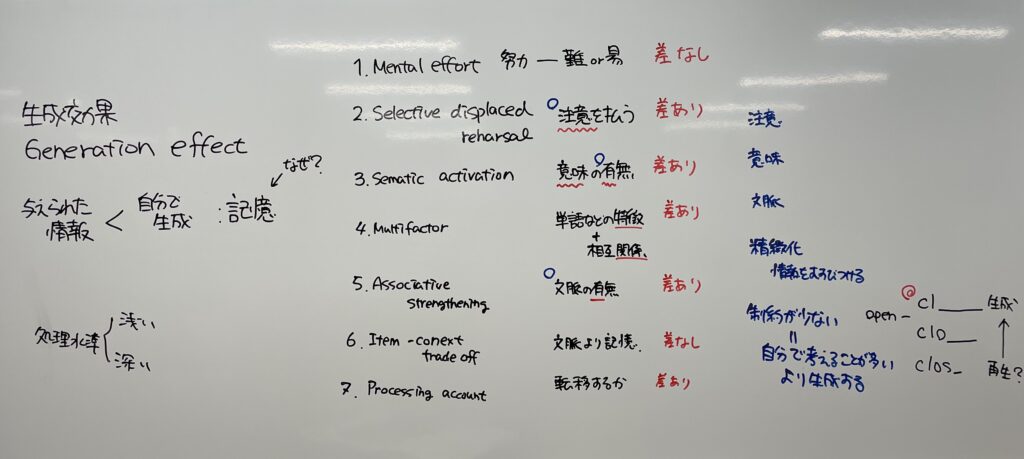 生成効果
Generation effect
なぜ?
与えられた情報 < 自分で生成 : 記憶
処理水準
浅い
深い
1. Mental effort 努力 — 難 or 易 差なし
2. Selective displaced
reharsal
注意を払う 差あり
3. Sematic activation 意味の有無 差あり
4. Multifactor 単語などの特徴
+
相互関係 差あり
5. Associative
strengthening
文脈の有無 差あり
6. Item - conext
trade off
文脈より記憶. 差なし
7. Processing account 転移するか 差あり
注意
意味
文脈
精緻化
情報をむすびつける
制約が少ない
=
自分で考えることが多い
より生成する
open - cl____ 生成
clo___
clos_ 再生?